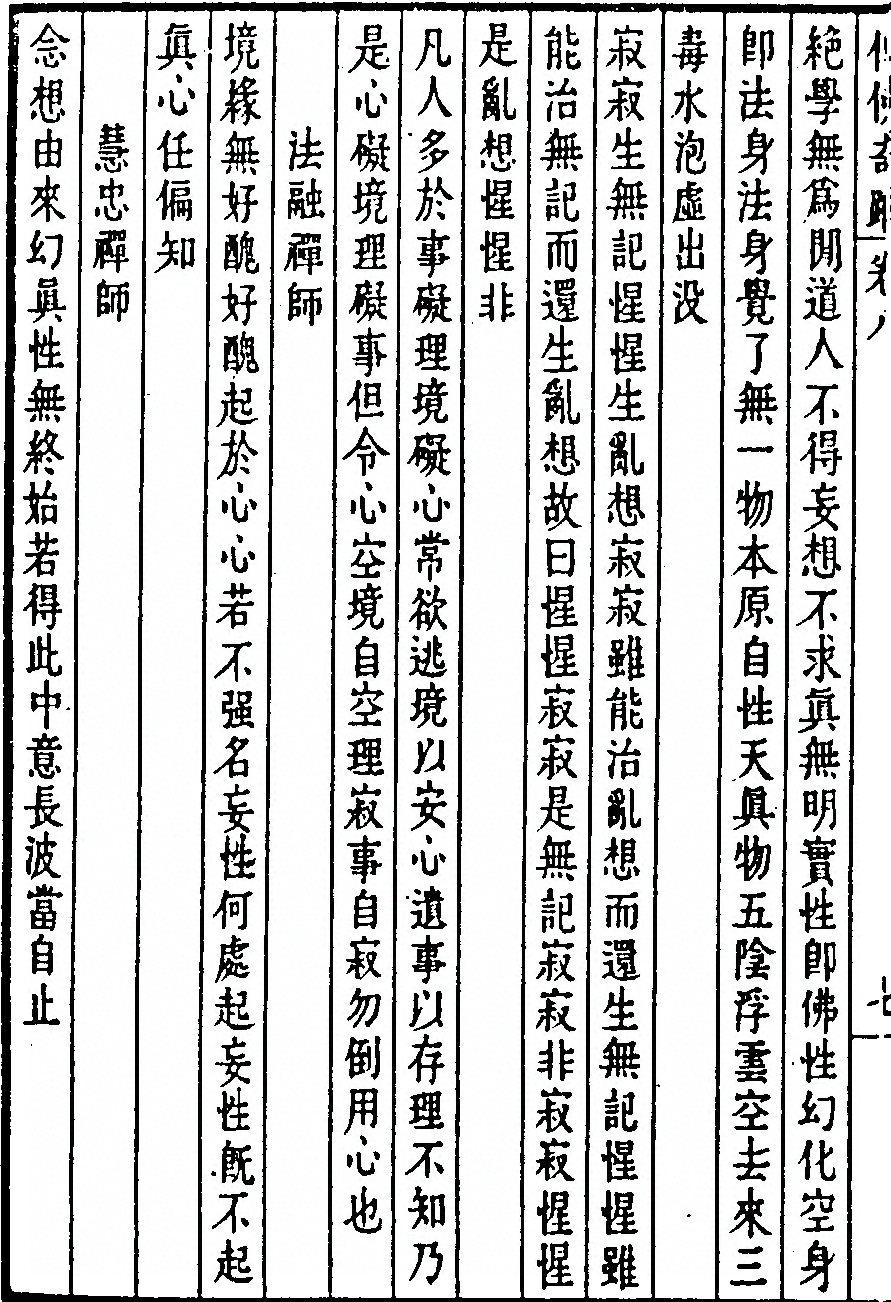 絶學無爲閒道人不得妄想不求眞無明實性卽佛性幻化空身
卽法身法身覺了無一物本原自性天眞物五陰浮雲空去來三
毒水泡虛出没
寂寂生無記惺惺生亂想寂寂雖能治亂想而還生無記惺惺雖
能治無記而還生亂想故曰惺惺寂寂是無記寂寂非寂寂惺惺
是亂想惺惺非
凡人多於事礙理境礙心常欲逃境以安心遺事以存理不知乃
是心礙境理礙事但令心空境自空理寂事自寂勿倒用心也
法融禪師
境緣無好醜好醜起於心心若不强名妄性何處起妄性旣不起
眞心任偏知
慧忠禪師
念想由來幻眞性無終始若得此中意長波當自止